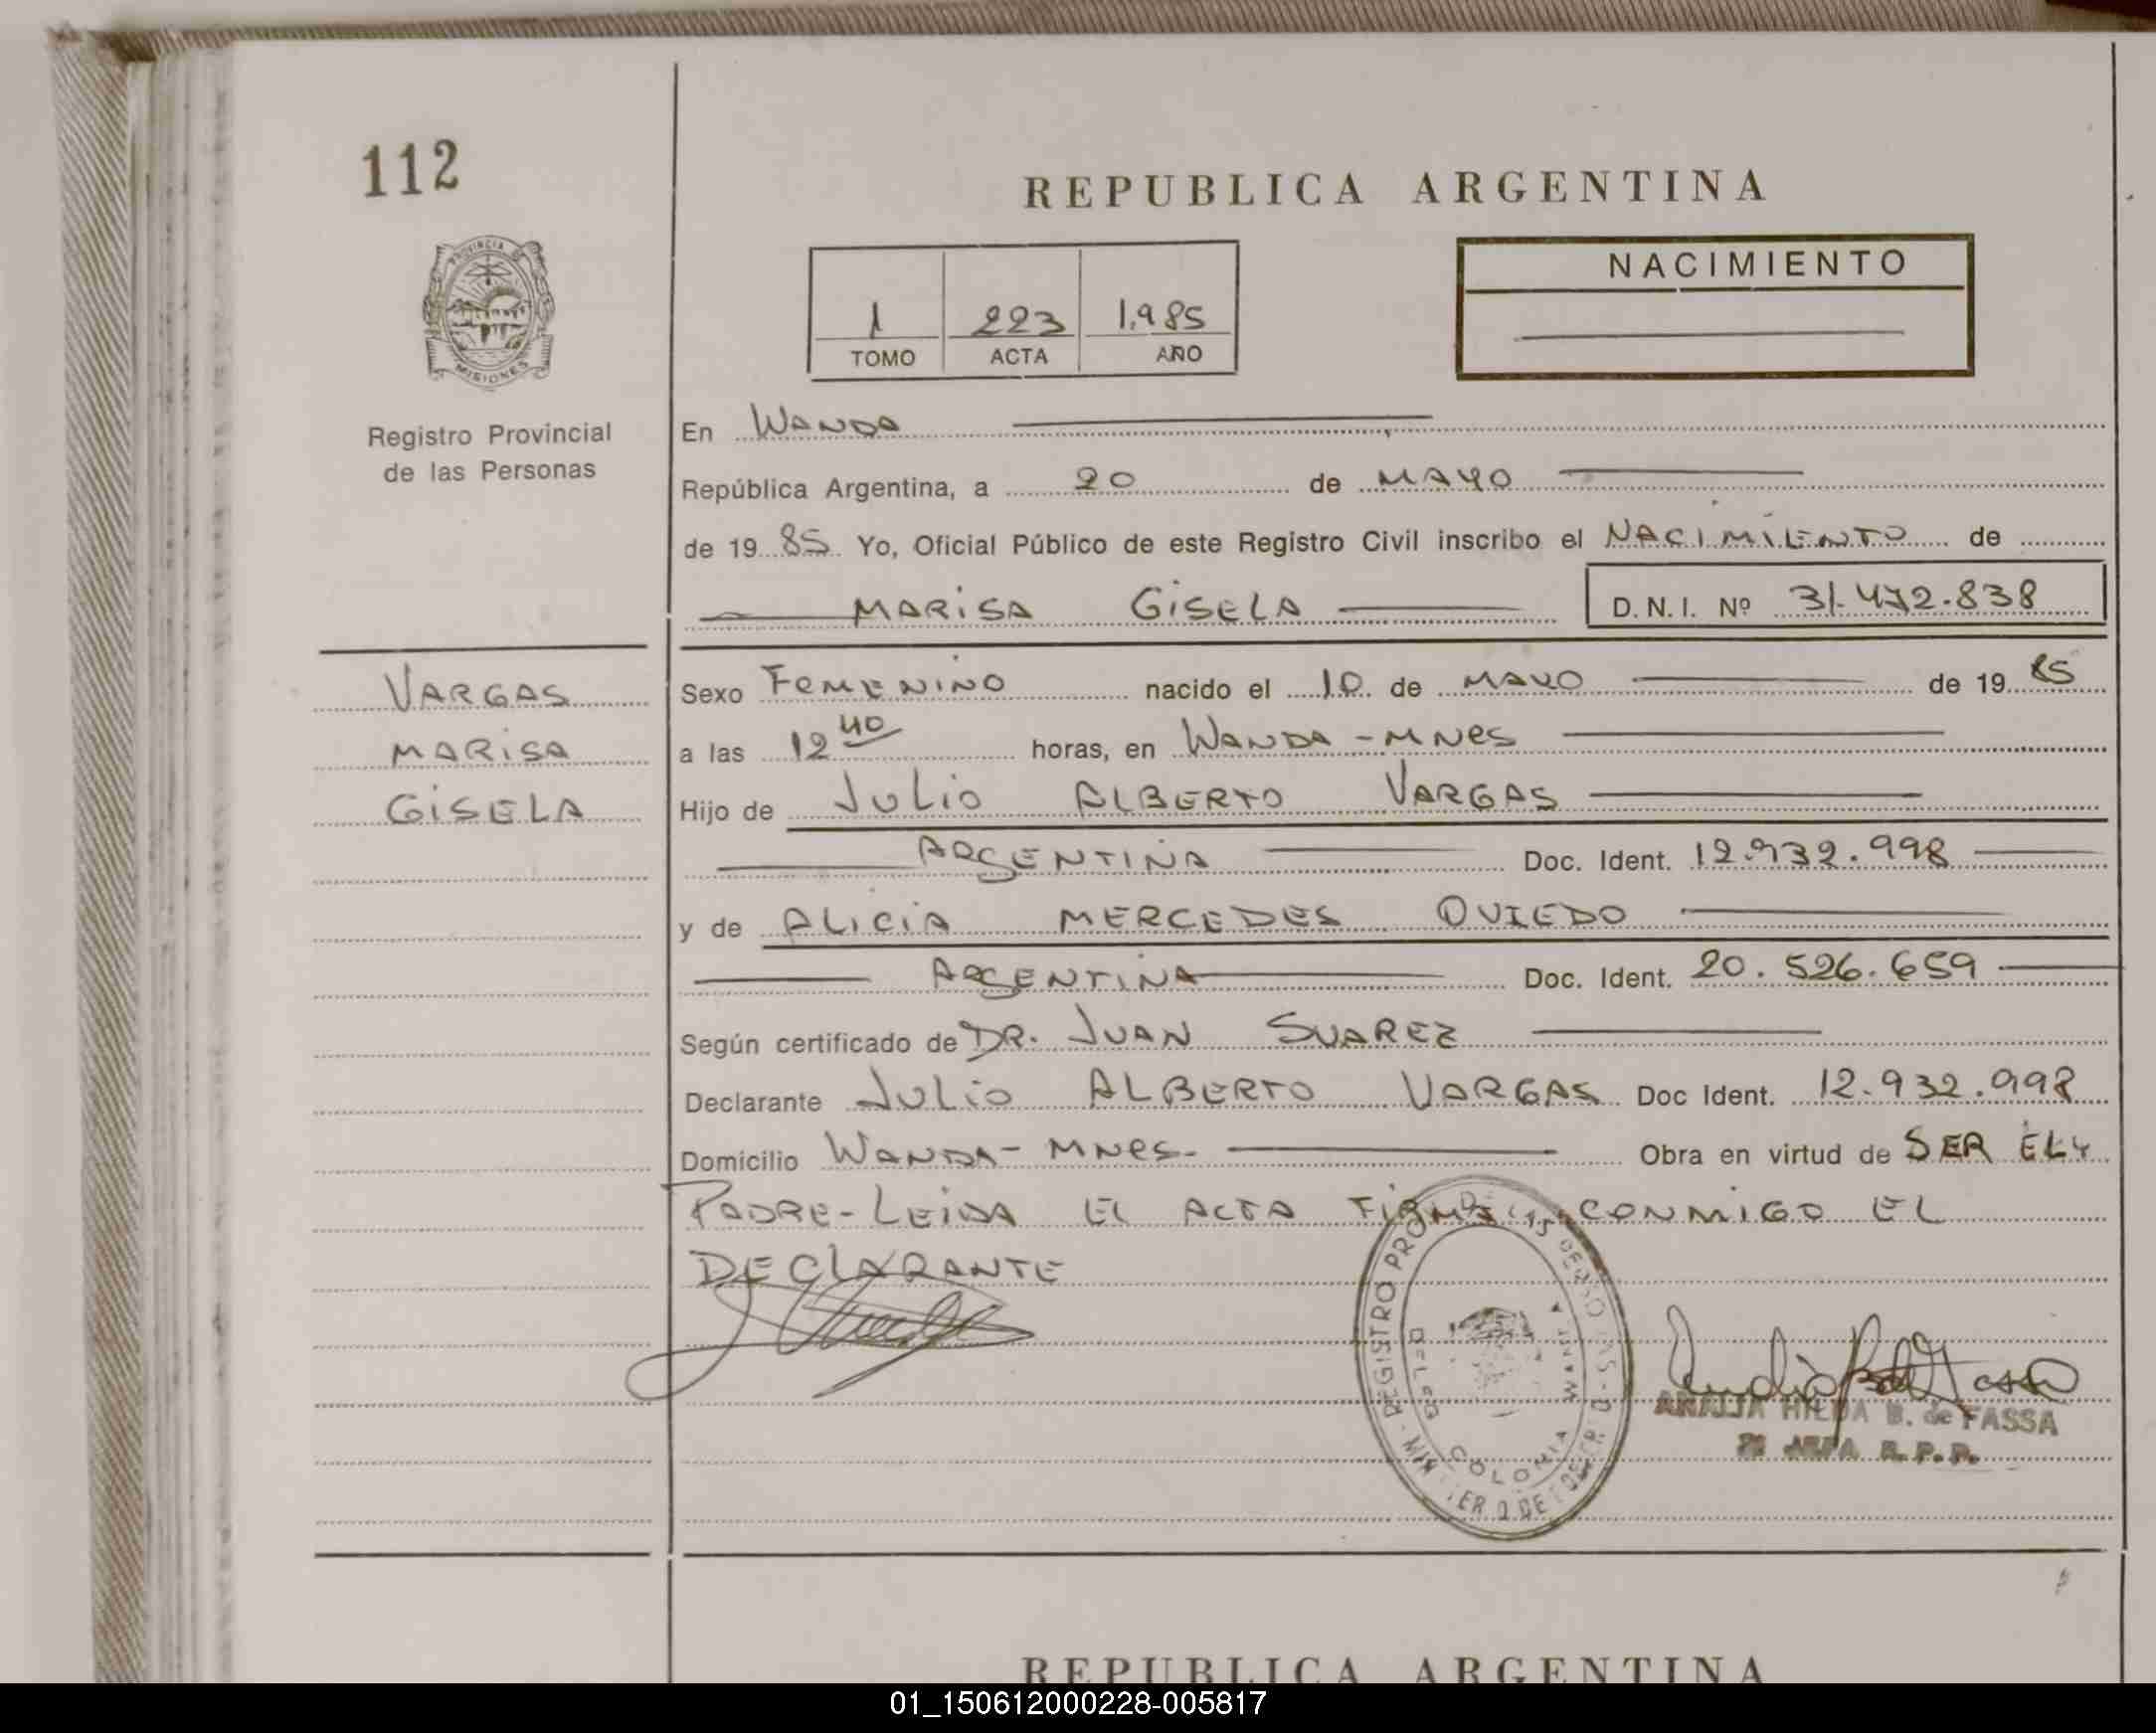 112
REPUBLICA ARGENTINA
PROVINCIA
MISIONES
1 223 1.985
TOMO ACTA AÑO
NACIMIENTO
Registro Provincial
de las Personas
En WANDA
República Argentina, a 20 de MAYO
de 19 85 Yo, Oficial Público de este Registro Civil inscribo el NACIMIENTO de
MARISA GISELA D.N.I. Nº 31.472.838
VARGAS
MARISA
GISELA
Sexo FEMENINO nacido el 10 de MAYO de 19 85
a las 12 40 horas, en WANDA - MNES
Hijo de JULIO ALBERTO VARGAS
ARGENTINA Doc. Ident. 12.932.998
y de ALICIA MERCEDES OVIEDO
ARGENTINA Doc. Ident. 20.526.659
Según certificado de DR. JUAN SUAREZ
Declarante JULIO ALBERTO VARGAS Doc Ident. 12.932.998
Domicilio WANDA - MNES. Obra en virtud de SER EL
PADRE - LEIDA EL ACTA FIRMA CONMIGO EL
DECLARANTE
REGISTRO PRO DE
DELEG COLONIA WANDA
ANALIA HILDA B. de FASSA
JEFA R.P.P.
REPUBLICA ARGENTINA
01_150612000228-005817